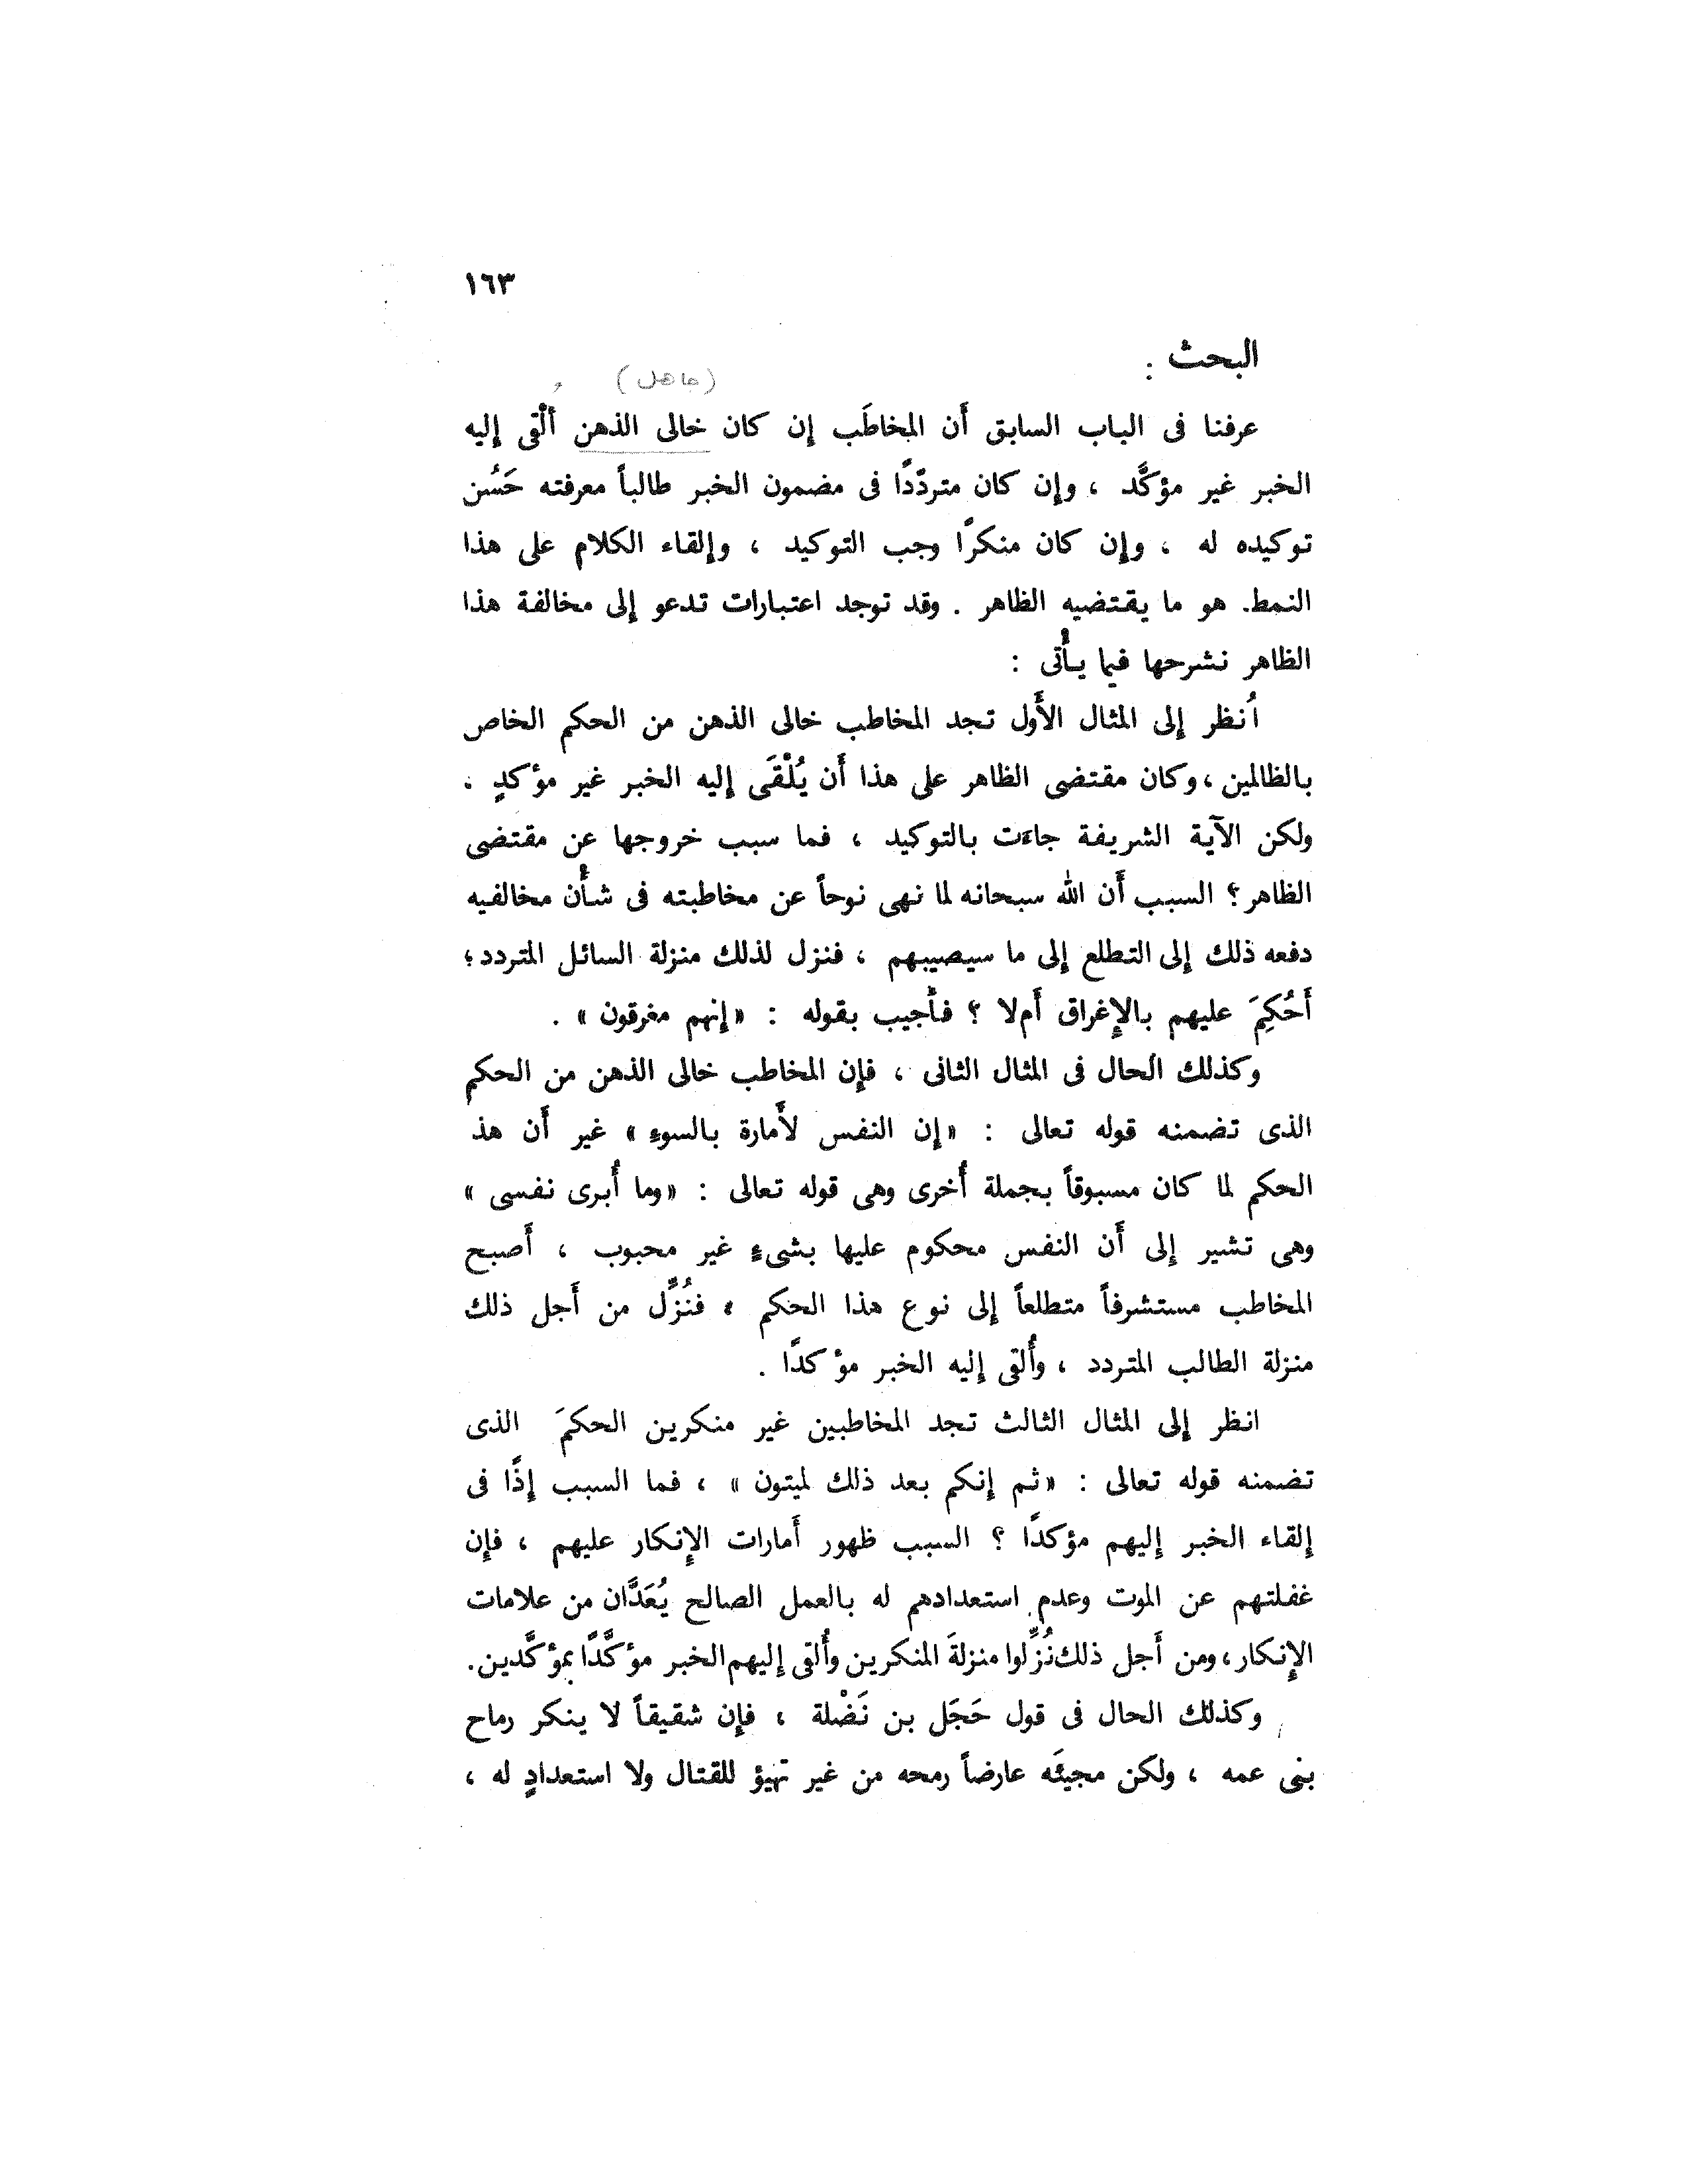 ١٦٣
البحث :
(جاهل)
عرفنا فى الباب السابق أَن المخاطَب إِن كان خالى الذهن أُلْقى إِليه
الخبر غير مؤكَّد ، وإِن كان متردّدًا فى مضمون الخبر طالباً معرفته حَسُن
توكيده له ، وإِن كان منكرًا وجب التوكيد ، وإِلقاء الكلام على هذا
النمط. هو ما يقتضيه الظاهر . وقد توجد اعتبارات تدعو إِلى مخالفة هذا
الظاهر نشرحها فيما يأْتى :
اُنظر إِلى المثال الأَول تجد المخاطب خالى الذهن من الحكم الخاص
بالظالمين ، وكان مقتضى الظاهر على هذا أَن يُلْقَى إِليه الخبر غير مؤكدٍ ،
ولكن الآية الشريفة جاءَت بالتوكيد ، فما سبب خروجها عن مقتضى
الظاهر ؟ السبب أَن الله سبحانه لما نهى نوحاً عن مخاطبته فى شأْن مخالفيه
دفعه ذلك إِلى التطلع إِلى ما سيصيبهم ، فنزل لذلك منزلة السائل المتردد ؛
أَحُكِمَ عليهم بالإِغراق أَم لا ؟ فأُجيب بقوله : «إِنهم مغرقون» .
وكذلك الحال فى المثال الثانى ، فإِن المخاطب خالى الذهن من الحكم
الذى تضمنه قوله تعالى : «إِن النفس لأَمارة بالسوءِ» غير أَن هذ
الحكم لما كان مسبوقاً بجملة أُخرى وهى قوله تعالى : «وما أُبرى نفسى»
وهى تشير إِلى أَن النفس محكوم عليها بشىءٍ غير محبوب ، أَصبح
المخاطب مستشرفاً متطلعاً إِلى نوع هذا الحكم ، فنُزِّل من أَجل ذلك
منزلة الطالب المتردد ، وأُلقى إِليه الخبر مؤكدًا .
انظر إِلى المثال الثالث تجد المخاطبين غير منكرين الحكمَ الذى
تضمنه قوله تعالى : «ثم إِنكم بعد ذلك لميتون» ، فما السبب إِذًا فى
إِلقاء الخبر إِليهم مؤكدًا ؟ السبب ظهور أَمارات الإِنكار عليهم ، فإِن
غفلتهم عن الموت وعدم استعدادهم له بالعمل الصالح يُعَدَّان من علامات
الإِنكار ، ومن أَجل ذلك نُزِّلوا منزلةَ المنكرين وأُلقى إِليهم الخبر مؤكَّدًا بمؤكَّدين.
وكذلك الحال فى قول حَجَل بن نَضْلة ، فإِن شقيقاً لا ينكر رماح
بنى عمه ، ولكن مجيئَه عارضاً رمحه من غير تهيؤ للقتال ولا استعدادٍ له ،